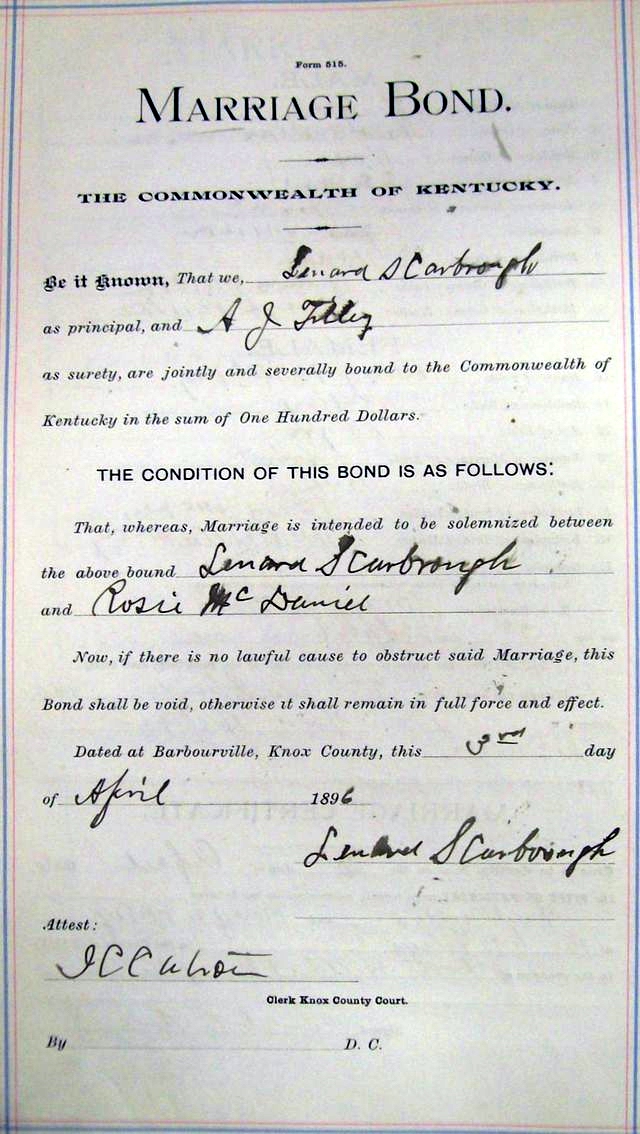 Form 515.
MARRIAGE BOND.
THE COMMONWEALTH OF KENTUCKY.
Be it Known, That we, Lenard Scarbrough
as principal, and A J Tilley
as surety, are jointly and severally bound to the Commonwealth of
Kentucky in the sum of One Hundred Dollars.
THE CONDITION OF THIS BOND IS AS FOLLOWS:
That, whereas, Marriage is intended to be solemnized between
the above bound Lenard Scarbrough
and Rosie Mc Daniel
Now, if there is no lawful cause to obstruct said Marriage, this
Bond shall be void, otherwise it shall remain in full force and effect.
Dated at Barbourville, Knox County, this 3rd day
of April 1896
Lenard Scarbrough
Attest:
Clerk Knox County Court.
By D. C.